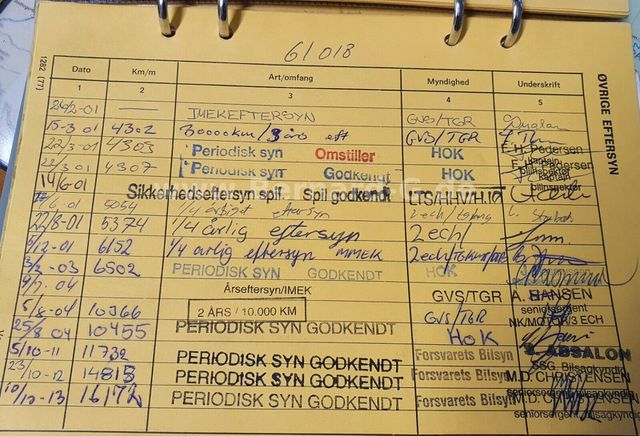 61018
1282 (77)
ØVRIGE EFTERSYN
Dato Km/m Art/omfang Myndighed Underskrift
1 2 3 4 5
24/2-01 — IMEKEFTERSYN GVS/TGR
15-3 01 4302 30000km/3 års eft GVS/TGR
22/3-01 4303 Periodisk syn Omstiller HOK E. H. Pedersen
22/3 01 4307 Periodisk syn Godkendt HOK Pedersen
bilinspektør
14/6-01 Sikkerhedseftersyn spif. Spil godkendt LTS/HHV/H.10
5054 1/4 årligt eftersyn 2ech/
22/8-01 5374 1/4 årlig eftersyn 2ech/
6/12-01 6152 1/4 årlig eftersyn MMEK 2ech/
3/2-03 6502 PERIODISK SYN GODKENDT HOK
Årseftersyn/IMEK GVS/TGR A. HANSEN
seniorsergent
5/8-04 10366 2 ÅRS / 10.000 KM GVS/TGR NK/MOTOR/3 ECH
25/8 04 10455 PERIODISK SYN GODKENDT HOK ABSALON
5/10-11 11732 PERIODISK SYN GODKENDT Forsvarets Bilsyn SSG. Bilsagkyndig
23/10-12 14813 PERIODISK SYN GODKENDT Forsvarets Bilsyn M.D. CHRISTENSEN
seniorsergent, Bilsagkyndig
10/12-13 16172 PERIODISK SYN GODKENDT Forsvarets Bilsyn M.D. CHRISTENSEN
seniorsergent, Bilsagkyndig